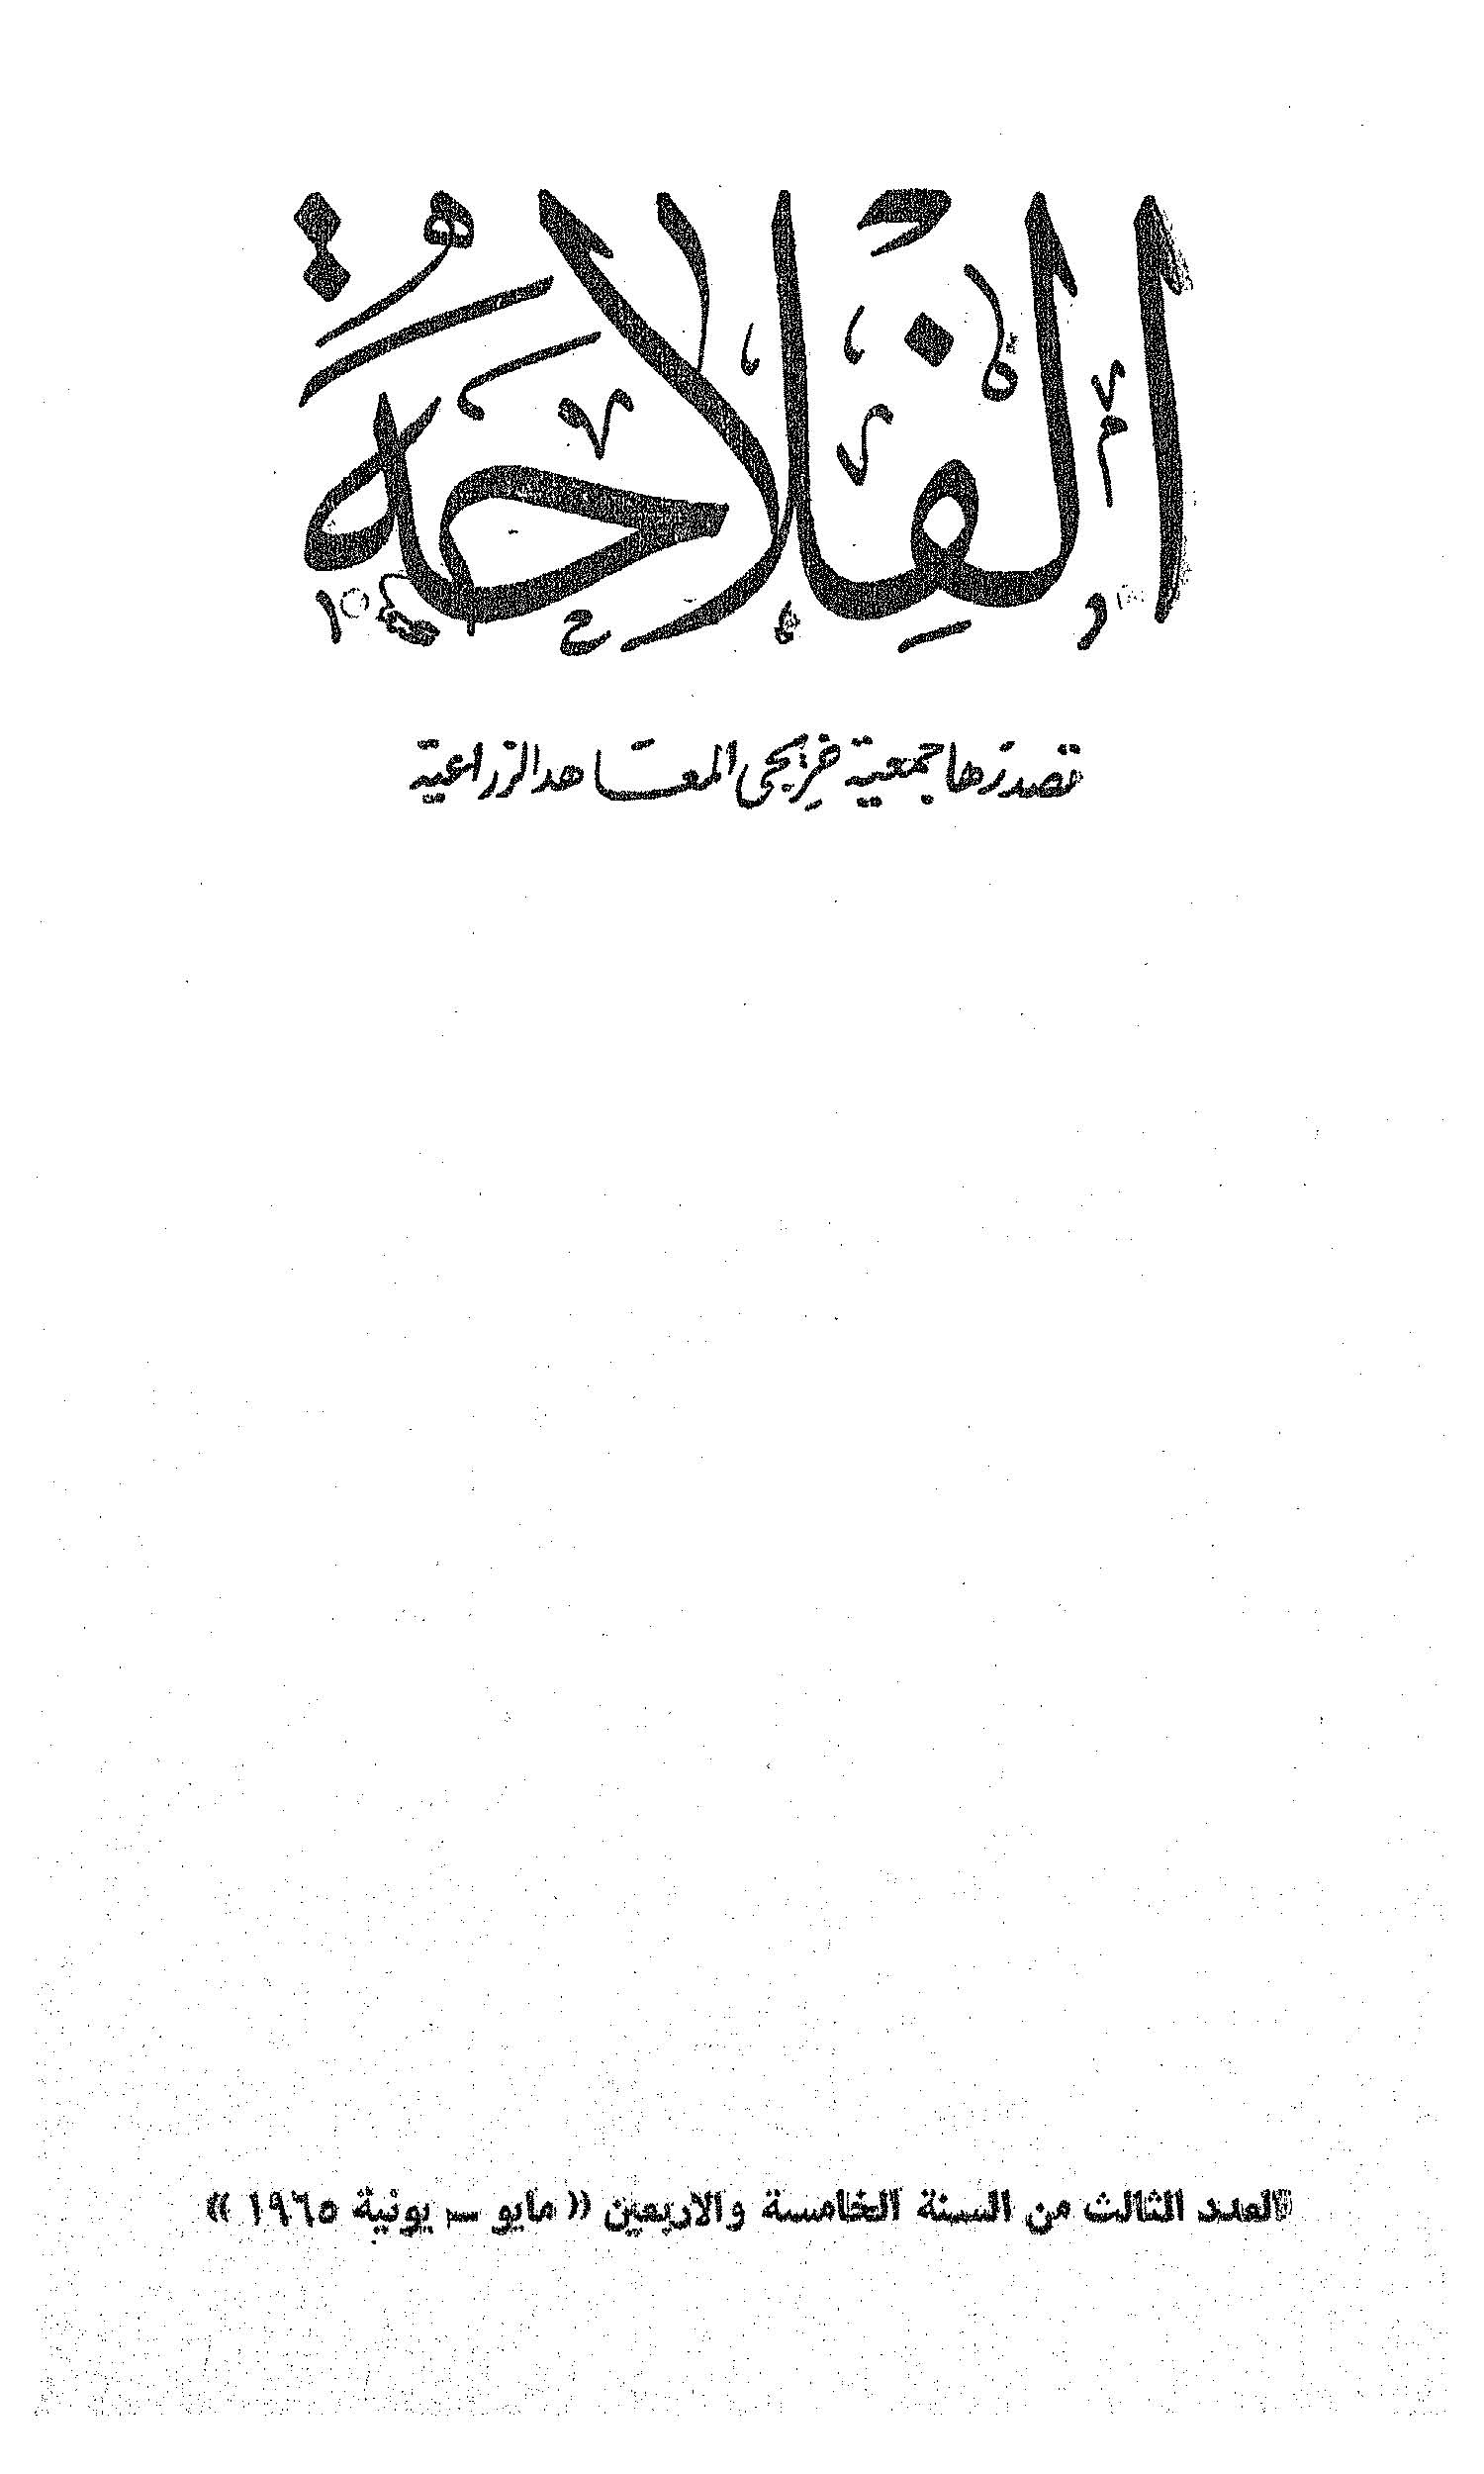 الفلاحة
تصدرها جمعية خريجى المعاهد الزراعية
العدد الثالث من السنة الخامسة والاربعين «مايو ــ يونية ١٩٦٥»